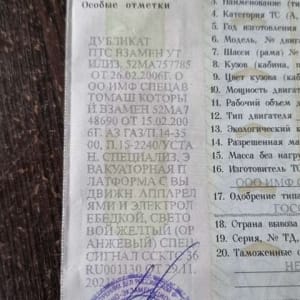 Особые отметки
ДУБЛИКАТ
ПТС ВЗАМЕН УТ
ИЛИЗ. 52МА757785
ОТ 26.02.2006Г. О
ОО ИМФ СПЕЦАВ
ТОМАШ КОТОРЫ
Й ВЗАМЕН 52МА7
48690 ОТ 15.02.200
6Г. АЗ ГАЗ/П.14-35
00, П.15-2240/УСТА
Н. СПЕЦИАЛИЗ, Э
ВАКУАТОРНАЯ П
ЛАТФОРМА С ВЫ
ДВИЖН. АППАРЕЛ
ЯМИ И ЭЛЕКТРОЛ
ЕБЕДКОЙ, СВЕТО
ВОЙ ЖЕЛТЫЙ (ОР
АНЖЕВЫЙ) СПЕЦ
СИГНАЛ ССКТС
4. Категория ТС (А,
5. Год изготовления
6. Модель, №
7. Шасси (рама) №
8. Кузов (кабина,
9. Цвет кузова
10. Мощность двигат
11. Рабочий объем
12. Тип двигателя
13. Экологический
14. Разрешенная
15. Масса без нагру
16. Изготовитель
ООО ИМФ
17. Одобрение типа
ГОС
18. Страна вывоза
19. Серия, № ТД,
20. Таможенные
НЕ